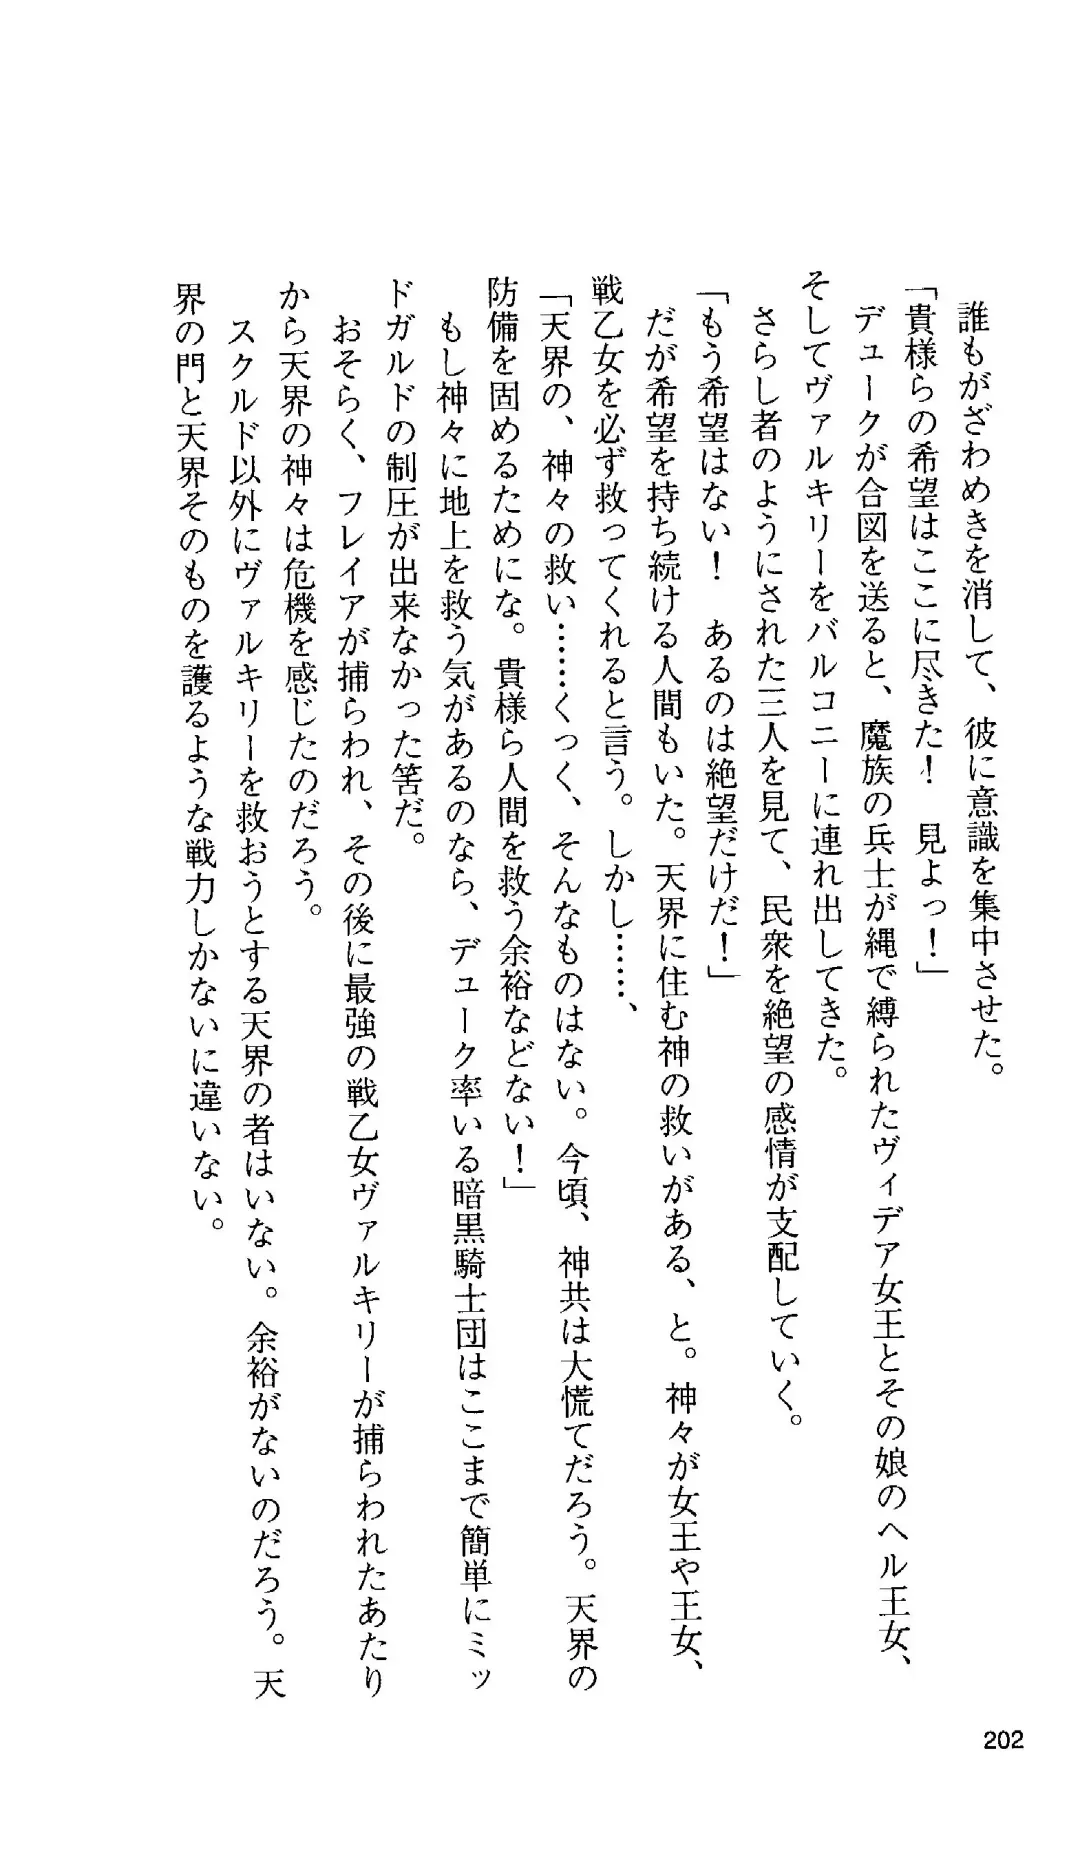 誰もがざわめきを消して、彼に意識を集中させた。
「貴様らの希望はここに尽きた！　見よっ！」
デュークが合図を送ると、魔族の兵士が縄で縛られたヴィデア女王とその娘のヘル王女、
そしてヴァルキリーをバルコニーに連れ出してきた。
さらし者のようにされた三人を見て、民衆を絶望の感情が支配していく。
「もう希望はない！　あるのは絶望だけだ！」
だが希望を持ち続ける人間もいた。天界に住む神の救いがある、と。神々が女王や王女、
戦乙女を必ず救ってくれると言う。しかし……、
「天界の、神々の救い……くっく、そんなものはない。今頃、神共は大慌てだろう。天界の
防備を固めるためにな。貴様ら人間を救う余裕などない！」
もし神々に地上を救う気があるのなら、デューク率いる暗黒騎士団はここまで簡単にミッ
ドガルドの制圧が出来なかった筈だ。
おそらく、フレイアが捕らわれ、その後に最強の戦乙女ヴァルキリーが捕らわれたあたり
から天界の神々は危機を感じたのだろう。
スクルド以外にヴァルキリーを救おうとする天界の者はいない。余裕がないのだろう。天
界の門と天界そのものを護るような戦力しかないに違いない。
202